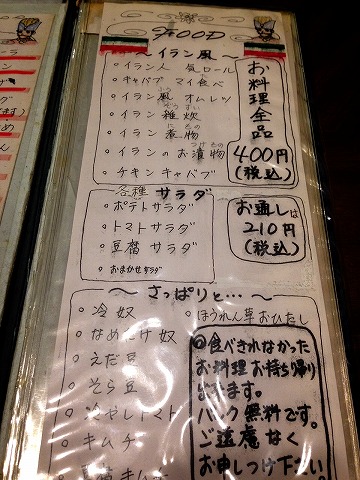 FOOD
〜イラン風〜
○イラン人 気ロール
○キャバブ マイ食べ
○イラン風 オムレツ
○イラン 雑炊
ぞうすい
○イラン 煮物
にもの
○イランのお漬物
つけもの
○チキンキャバブ
お料理全品
400円
(税込)
各種 サラダ
・ポテトサラダ
・トマトサラダ
・豆腐サラダ
・おまかせサラダ
お通しは
210円
(税込)
〜さっぱりと…〜
○冷奴
○ほうれん草おひたし
○なめたけ奴
○えだ豆
○そら豆
○冷やしトマト
○キムチ
◎食べきれなかった
お料理お持ち帰り
出来ます。
パック無料です。
ご遠慮なく
お申しつけ下さい